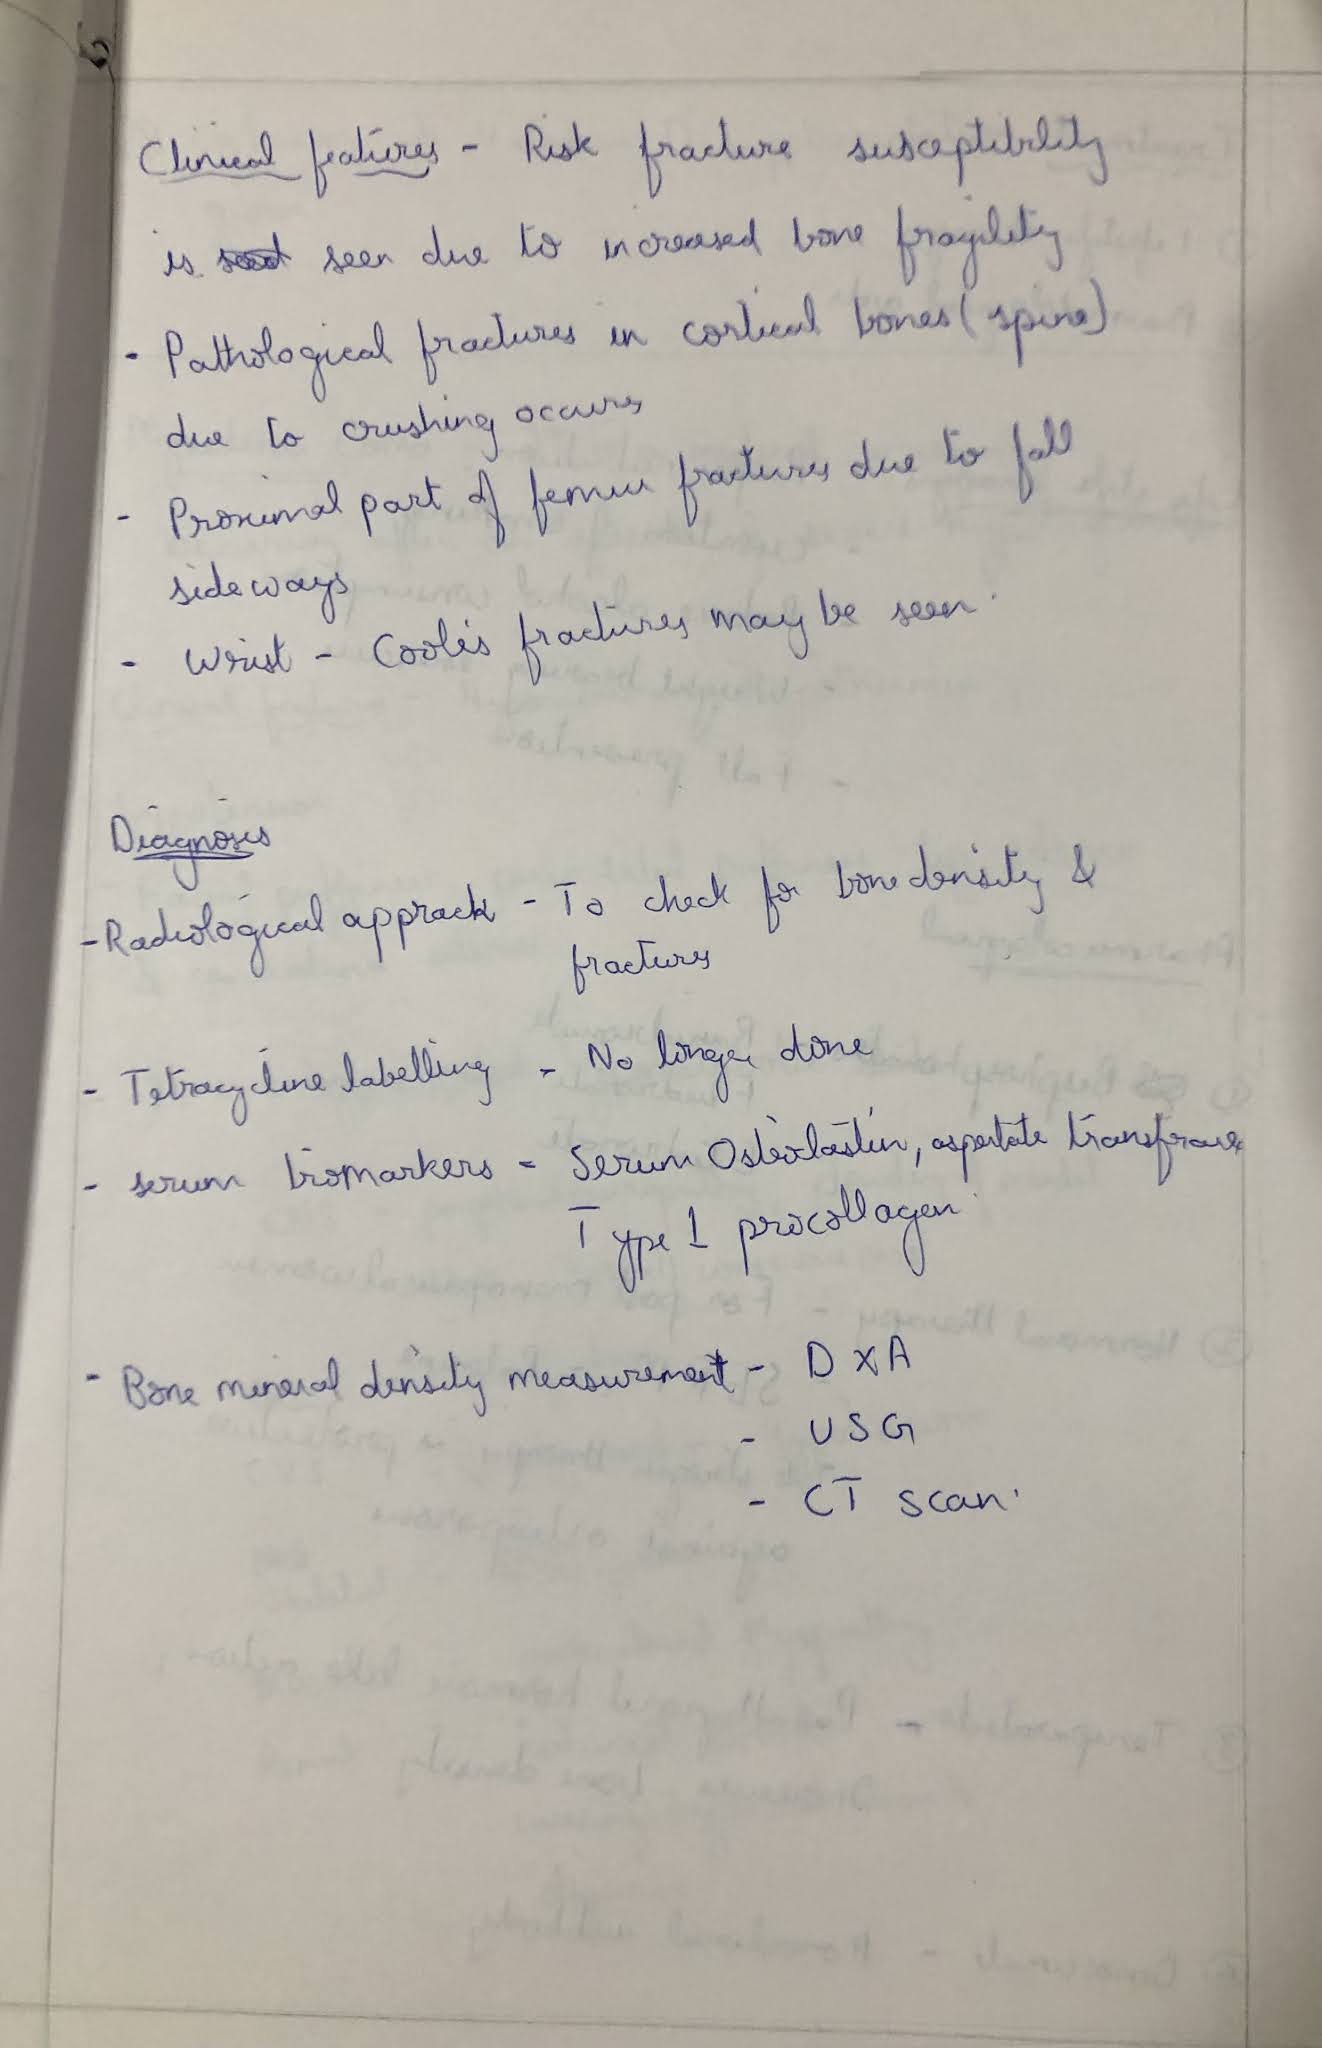 Clinical features - Risk fracture susceptibility
is seen due to increased bone fragility
- Pathological fractures in cortical bones (spine)
due to crushing occurs
- Proximal part of femur fractures due to fall
sideways
- Wrist - Coole's fractures may be seen.
Diagnosis
- Radiological apprach - To check for bone density &
fractures
- Tetracycline labelling - No longer done
- serum biomarkers - Serum Osteoclastin, aspertate
Type 1 procollagen.
- Bone mineral density measurement - DXA
- USG
- CT scan.